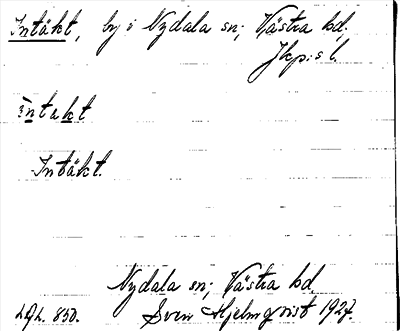 Intäkt, by i Nydala sn; Västra hd.
Jkp:s l.
intakt
Intäkt.
Nydala sn; Västra hd.
Lgh. 850. Sven Hjelmqvist 1927.